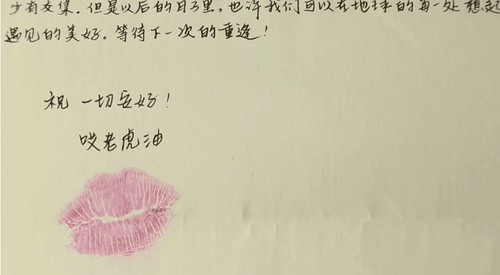 少有交集。但是以后的日子里，也许我们可以在地球的每一处想起
遇见的美好。等待下一次的重逢！
祝 一切安好！
哎老虎油